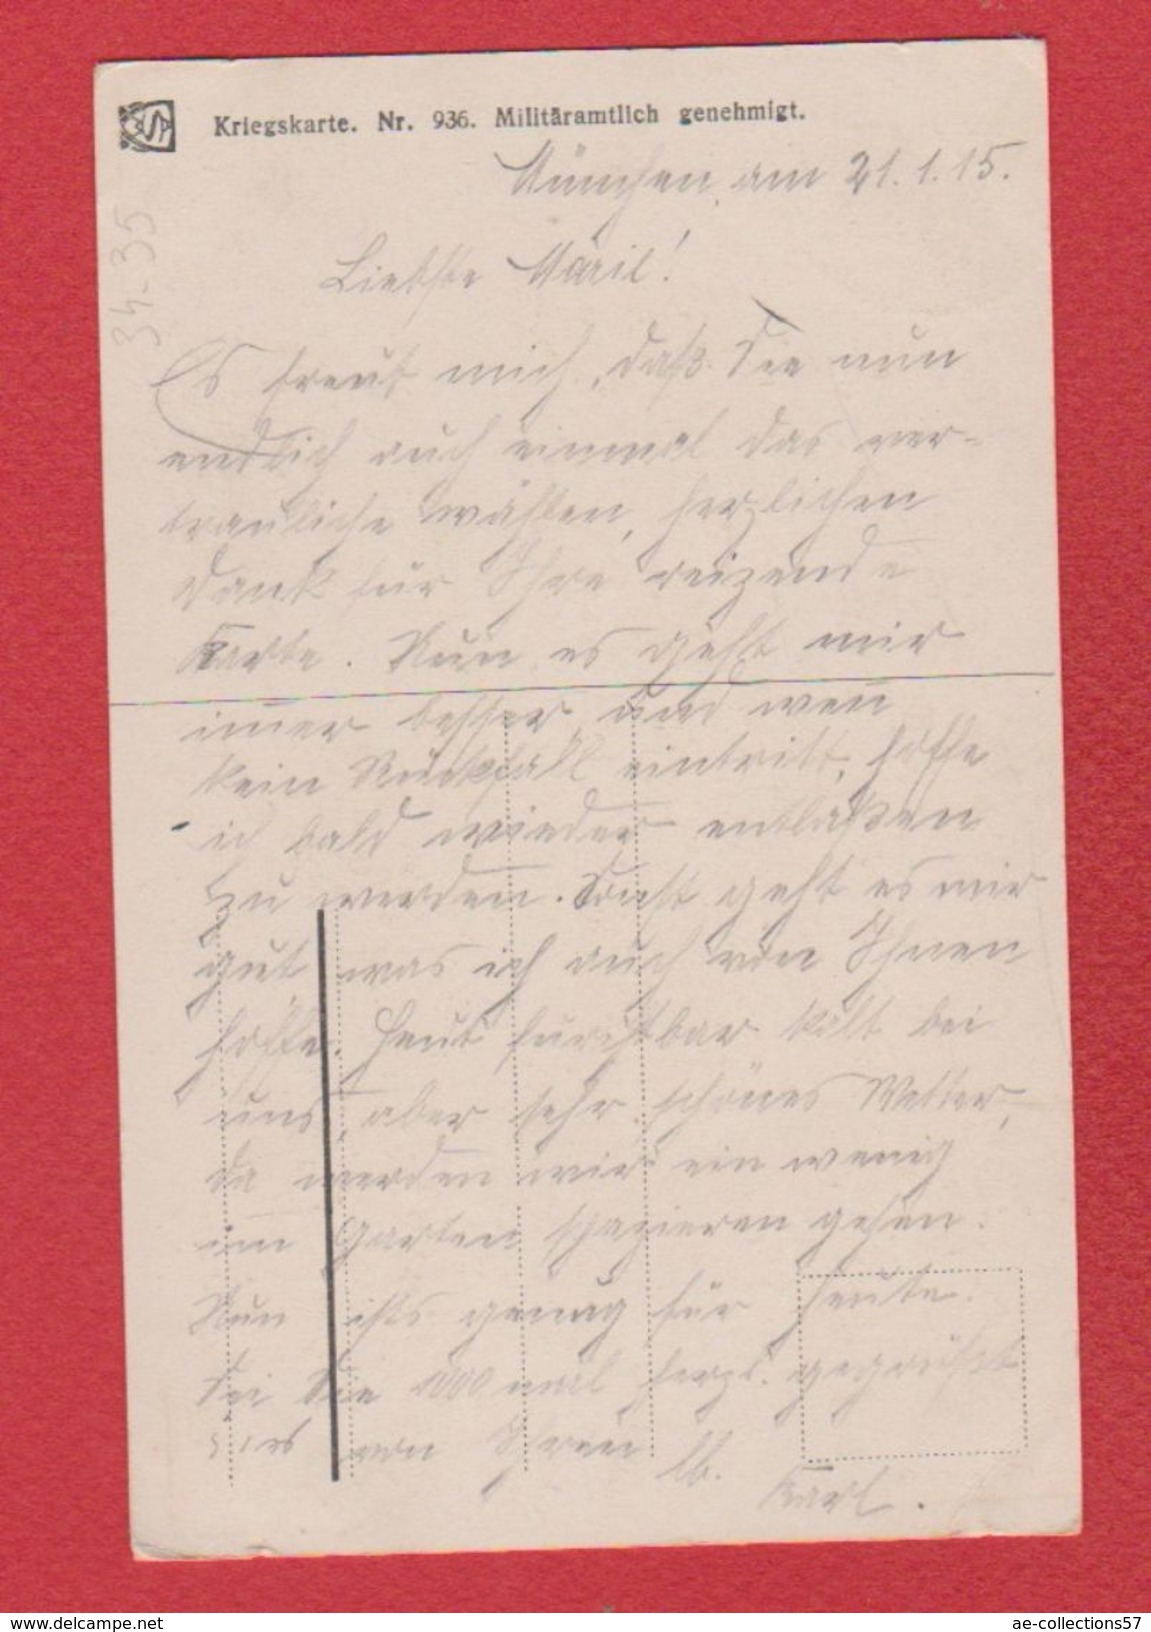 Kriegskarte. Nr. 936. Militäramtlich genehmigt.
München, am 21.1.15.
34-35
Liebste Maril!
Es freut mich, daß Sie nun
endlich auch einmal das ver-
trauliche wählten, herzlichen
Dank für Ihre reizende
Karte. Nun es geht mir
im̄er besser und wen̄
kein Rückfall eintritt, hoffe
ich bald wieder entlaßen
zu werden. Sonst geht es mir
gut was ich auch von Ihnen
hoffe. Heut furchtbar kalt bei
uns, aber sehr schönes Wetter,
da werden wir ein wenig
im Garten spazieren gehen.
Nun ists genug für heute.
Sei Sie 1000 mal herzl. gegrüßt
von Ihren lb.
Karl.
www.delcampe.net
ae-collections57